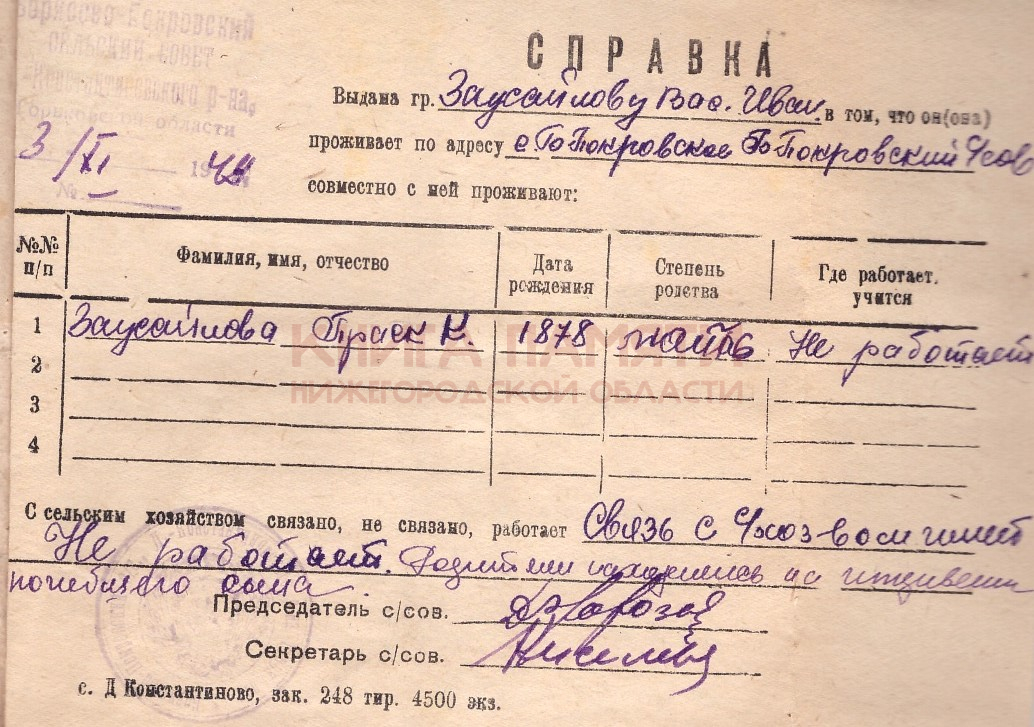 Борисово-Покровский
сельский совет
Константиновского р-на,
Горьковской области
3/XI 1944
№ —
СПРАВКА
Выдана гр. Заусайлову Вас. Иван. в том, что он(она)
проживает по адресу с Бо-Покровское Бо-Покровский
совместно с ней проживают:
№№ п/п
Фамилия, имя, отчество
Дата рождения
Степень родства
Где работает, учится
1 Заусайлова Праск Н. 1878 мать Не работает
2
3
4
КНИГА ПАМЯТИ
НИЖЕГОРОДСКОЙ ОБЛАСТИ
С сельским хозяйством связано, не связано, работает Связь с имеет
Не работает. Родители находились на иждивении
погибшего сына.
Председатель с/сов.
Секретарь с/сов.
с. Д Константиново, зак. 248 тир. 4500 экз.